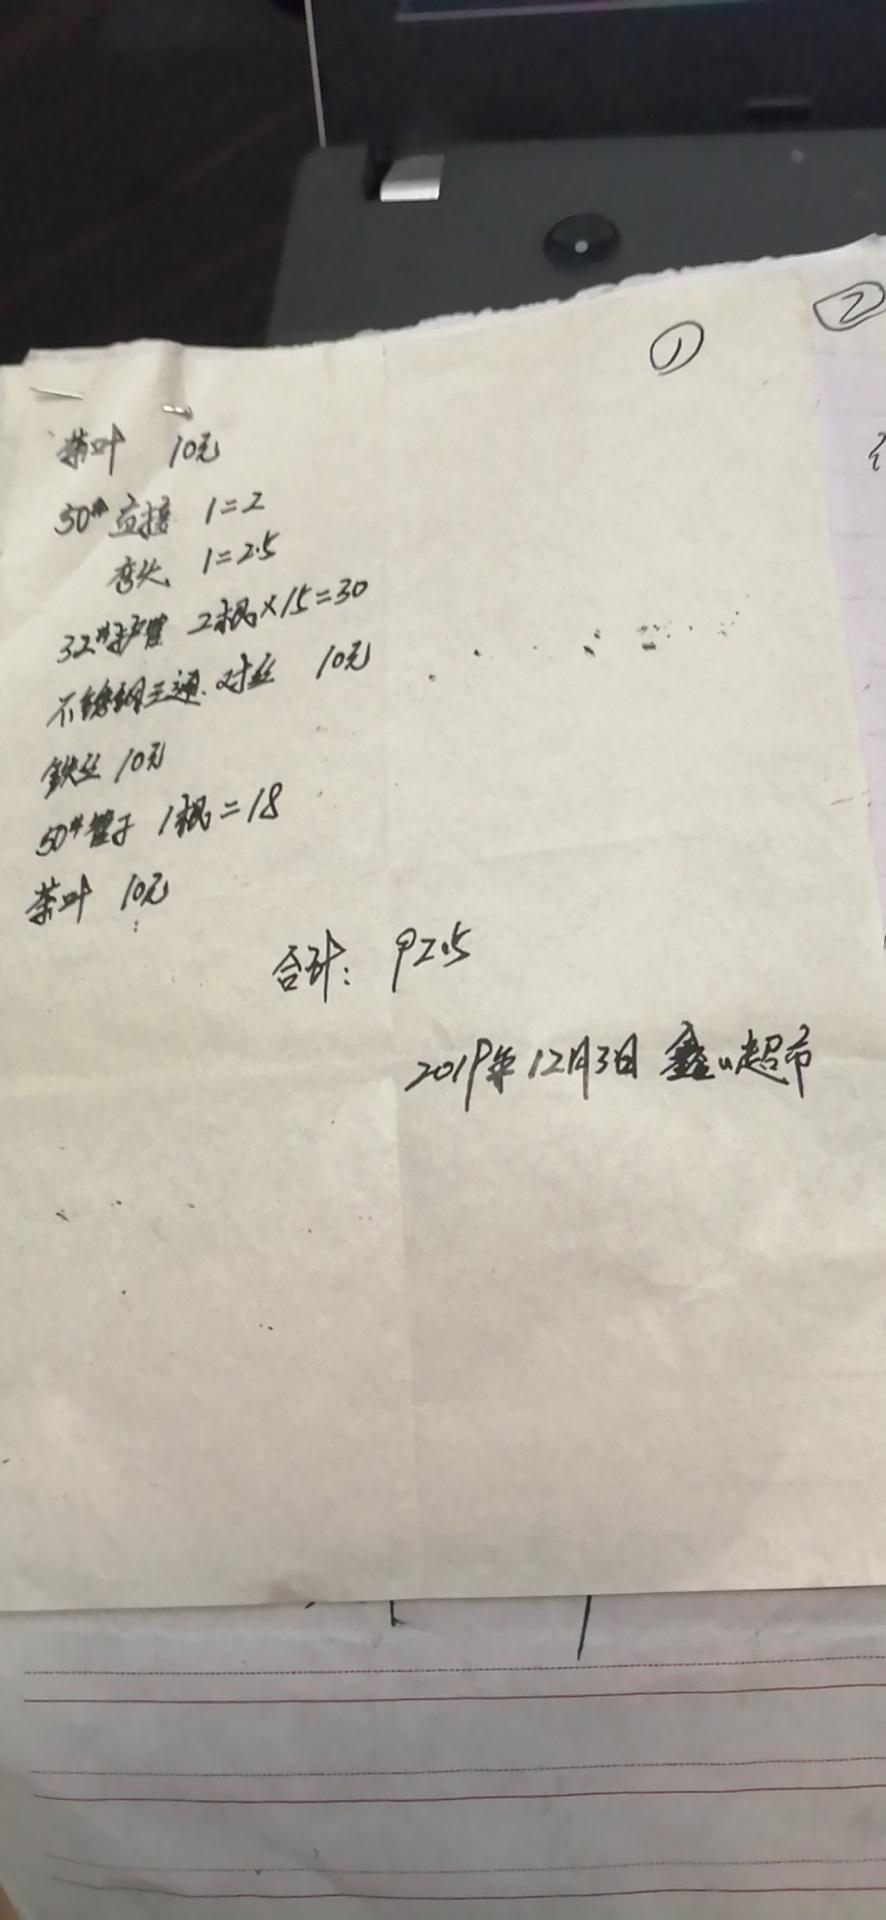 ①
②
茶叶 10元
50# 直接 1=2
弯头 1=2.5
32#护管 2根×15=30
不锈钢三通.对丝 10元
铁丝 10元
50#管子 1根=18
茶叶 10元
合计: 92.5
2019年12月3日 鑫山超市